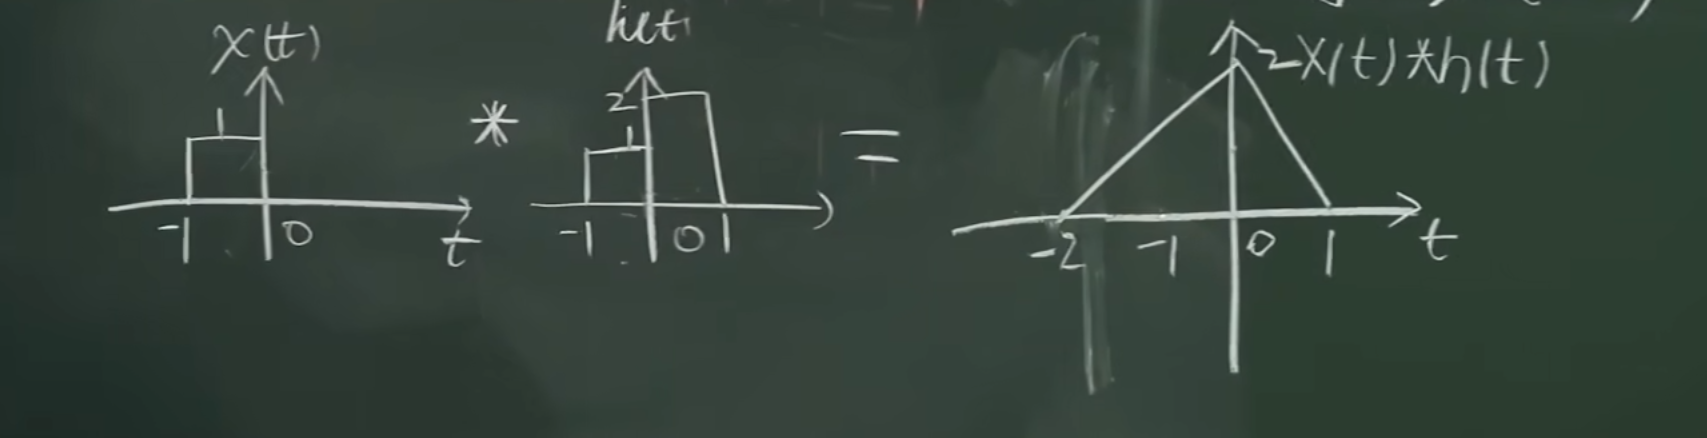 x(t)
1
-1 0 t
*
h(t)
2
1
-1 0 1
=
2 x(t)*h(t)
-2 -1 0 1 t